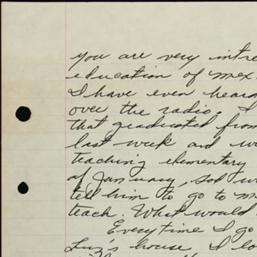 you are very intre
education of mex
I have even heard
over the radio. I
that graduated from
last week and w
teaching elementary
of January, and w
tell him to go to m
teach. What would
Everytime I go
Luz's house I lo